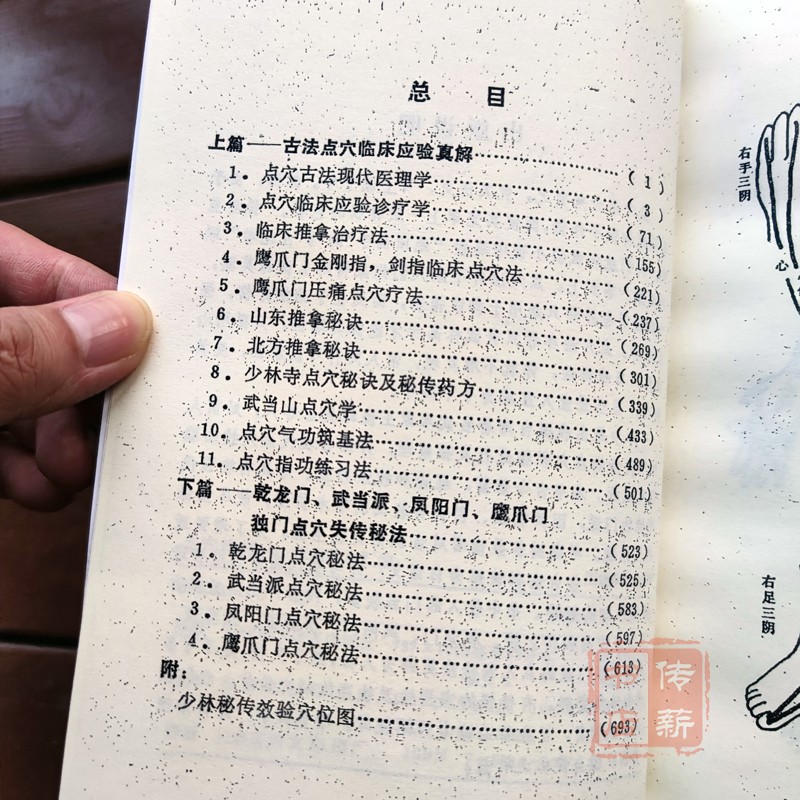 总 目
上篇——古法点穴临床应验真解……………………(1)
1．点穴古法现代医理学……………………(3)
2．点穴临床应验诊疗学……………………(71)
3．临床推拿治疗法……………………(155)
4．鹰爪门金刚指，剑指临床点穴法……………………(221)
5．鹰爪门压痛点穴疗法……………………(237)
6．山东推拿秘诀……………………(269)
7．北方推拿秘诀……………………(301)
8．少林寺点穴秘诀及秘传药方……………………(339)
9．武当山点穴学……………………(433)
10．点穴气功筑基法……………………(489)
11．点穴指功练习法……………………(501)
下篇——乾龙门、武当派、凤阳门、鹰爪门
独门点穴失传秘法……………………(523)
1．乾龙门点穴秘法……………………(525)
2．武当派点穴秘法……………………(583)
3．凤阳门点穴秘法……………………(597)
4．鹰爪门点穴秘法……………………(613)
附：
少林秘传效验穴位图……………………(693)
右手三阴
心
右足三阴
传薪